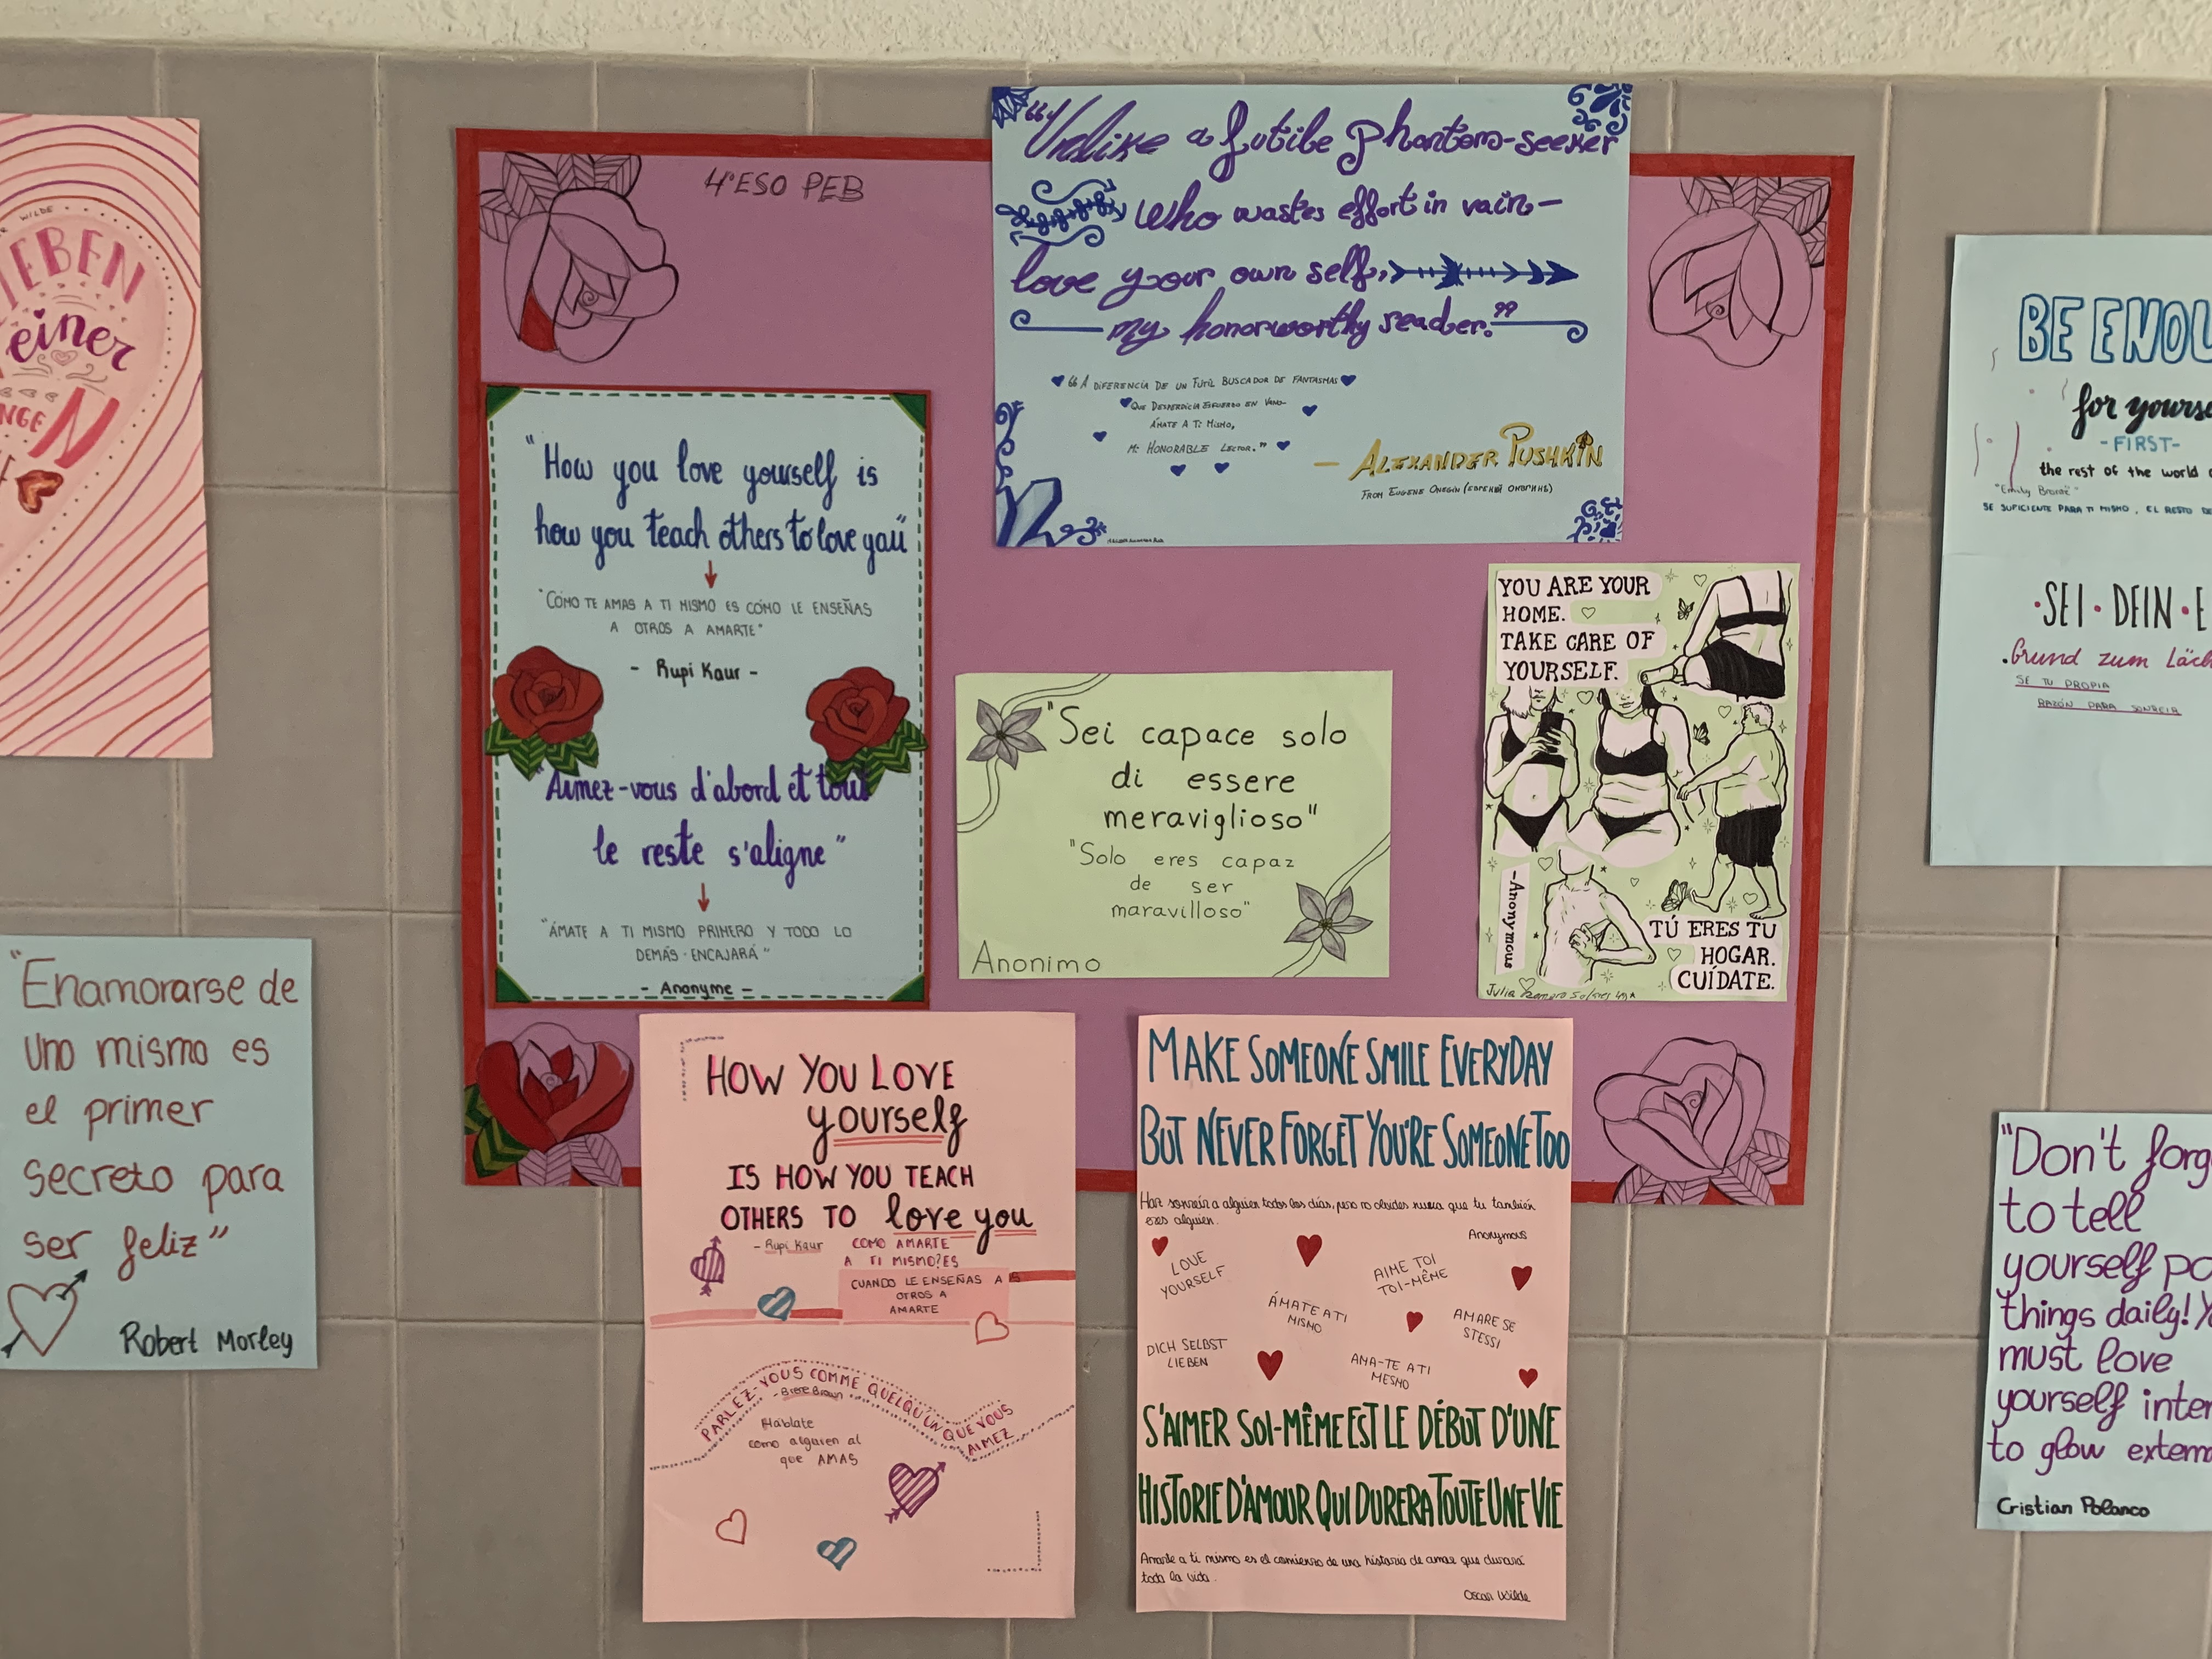 WILDE
IEBEN
einer
NGE N
4º ESO PEB
"Unlike a futile Phantom-seeker
who wastes effort in vain—
love your own self,
my honorworthy reader."
"A DIFERENCIA DE UN FUTIL BUSCADOR DE FANTASMAS
QUE DESPERDICIA ESFUERZO EN VANO-
ÁMATE A TI MISMO,
MI HONORABLE LECTOR."
— ALEXANDER PUSHKIN
FROM EUGENE ONEGIN
"How you love yourself is
how you teach others to love you"
"CÓMO TE AMAS A TI MISMO ES CÓMO LE ENSEÑAS
A OTROS A AMARTE"
- Rupi Kaur -
"Aimez-vous d'abord et tout
le reste s'aligne"
"ÁMATE A TI MISMO PRIMERO Y TODO LO
DEMÁS ENCAJARÁ"
- Anonyme -
"Sei capace solo
di essere
meraviglioso"
"Solo eres capaz
de ser
maravilloso"
Anonimo
YOU ARE YOUR
HOME.
TAKE CARE OF
YOURSELF.
-Anonymous
TÚ ERES TU
HOGAR.
CUÍDATE.
Julia
BE ENOU
for yourse
-FIRST-
the rest of the world
"Emily Brontë"
SE SUFICIENTE PARA TI MISMO, EL RESTO DE
·SEI·DEIN·E
.Grund zum Läch
SE TU PROPIA
RAZÓN PARA SONREIR
"Enamorarse de
uno mismo es
el primer
secreto para
ser feliz"
Robert Morley
HOW YOU LOVE
yourself
IS HOW YOU TEACH
OTHERS TO love you
- Rupi Kaur
COMO AMARTE
A TI MISMO?ES
CUANDO LE ENSEÑAS A
OTROS A
AMARTE
PARLEZ-VOUS COMME QUELQU'UN QUE VOUS
AIMEZ
- Brene Brown
Háblate
como alguien al
que AMAS
MAKE SOMEONE SMILE EVERYDAY
BUT NEVER FORGET YOU'RE SOMEONE TOO
Haz sonreír a alguien todos los días, pero no olvides nunca que tu también
eres alguien.
Anonymous
LOVE
YOURSELF
AIME TOI
TOI-MÊME
ÁMATE A TI
MISMO
AMARE SE
STESSI
DICH SELBST
LIEBEN
AMA-TE A TI
MESMO
S'AIMER SOI-MÊME EST LE DÉBUT D'UNE
HISTORIE D'AMOUR QUI DURERA TOUTE UNE VIE
Amarte a ti mismo es el comienzo de una historia de amor que durará
toda la vida.
Oscar Wilde
"Don't forg
to tell
yourself po
things daily! Yo
must love
yourself inter
to glow extern
Cristian Polanco